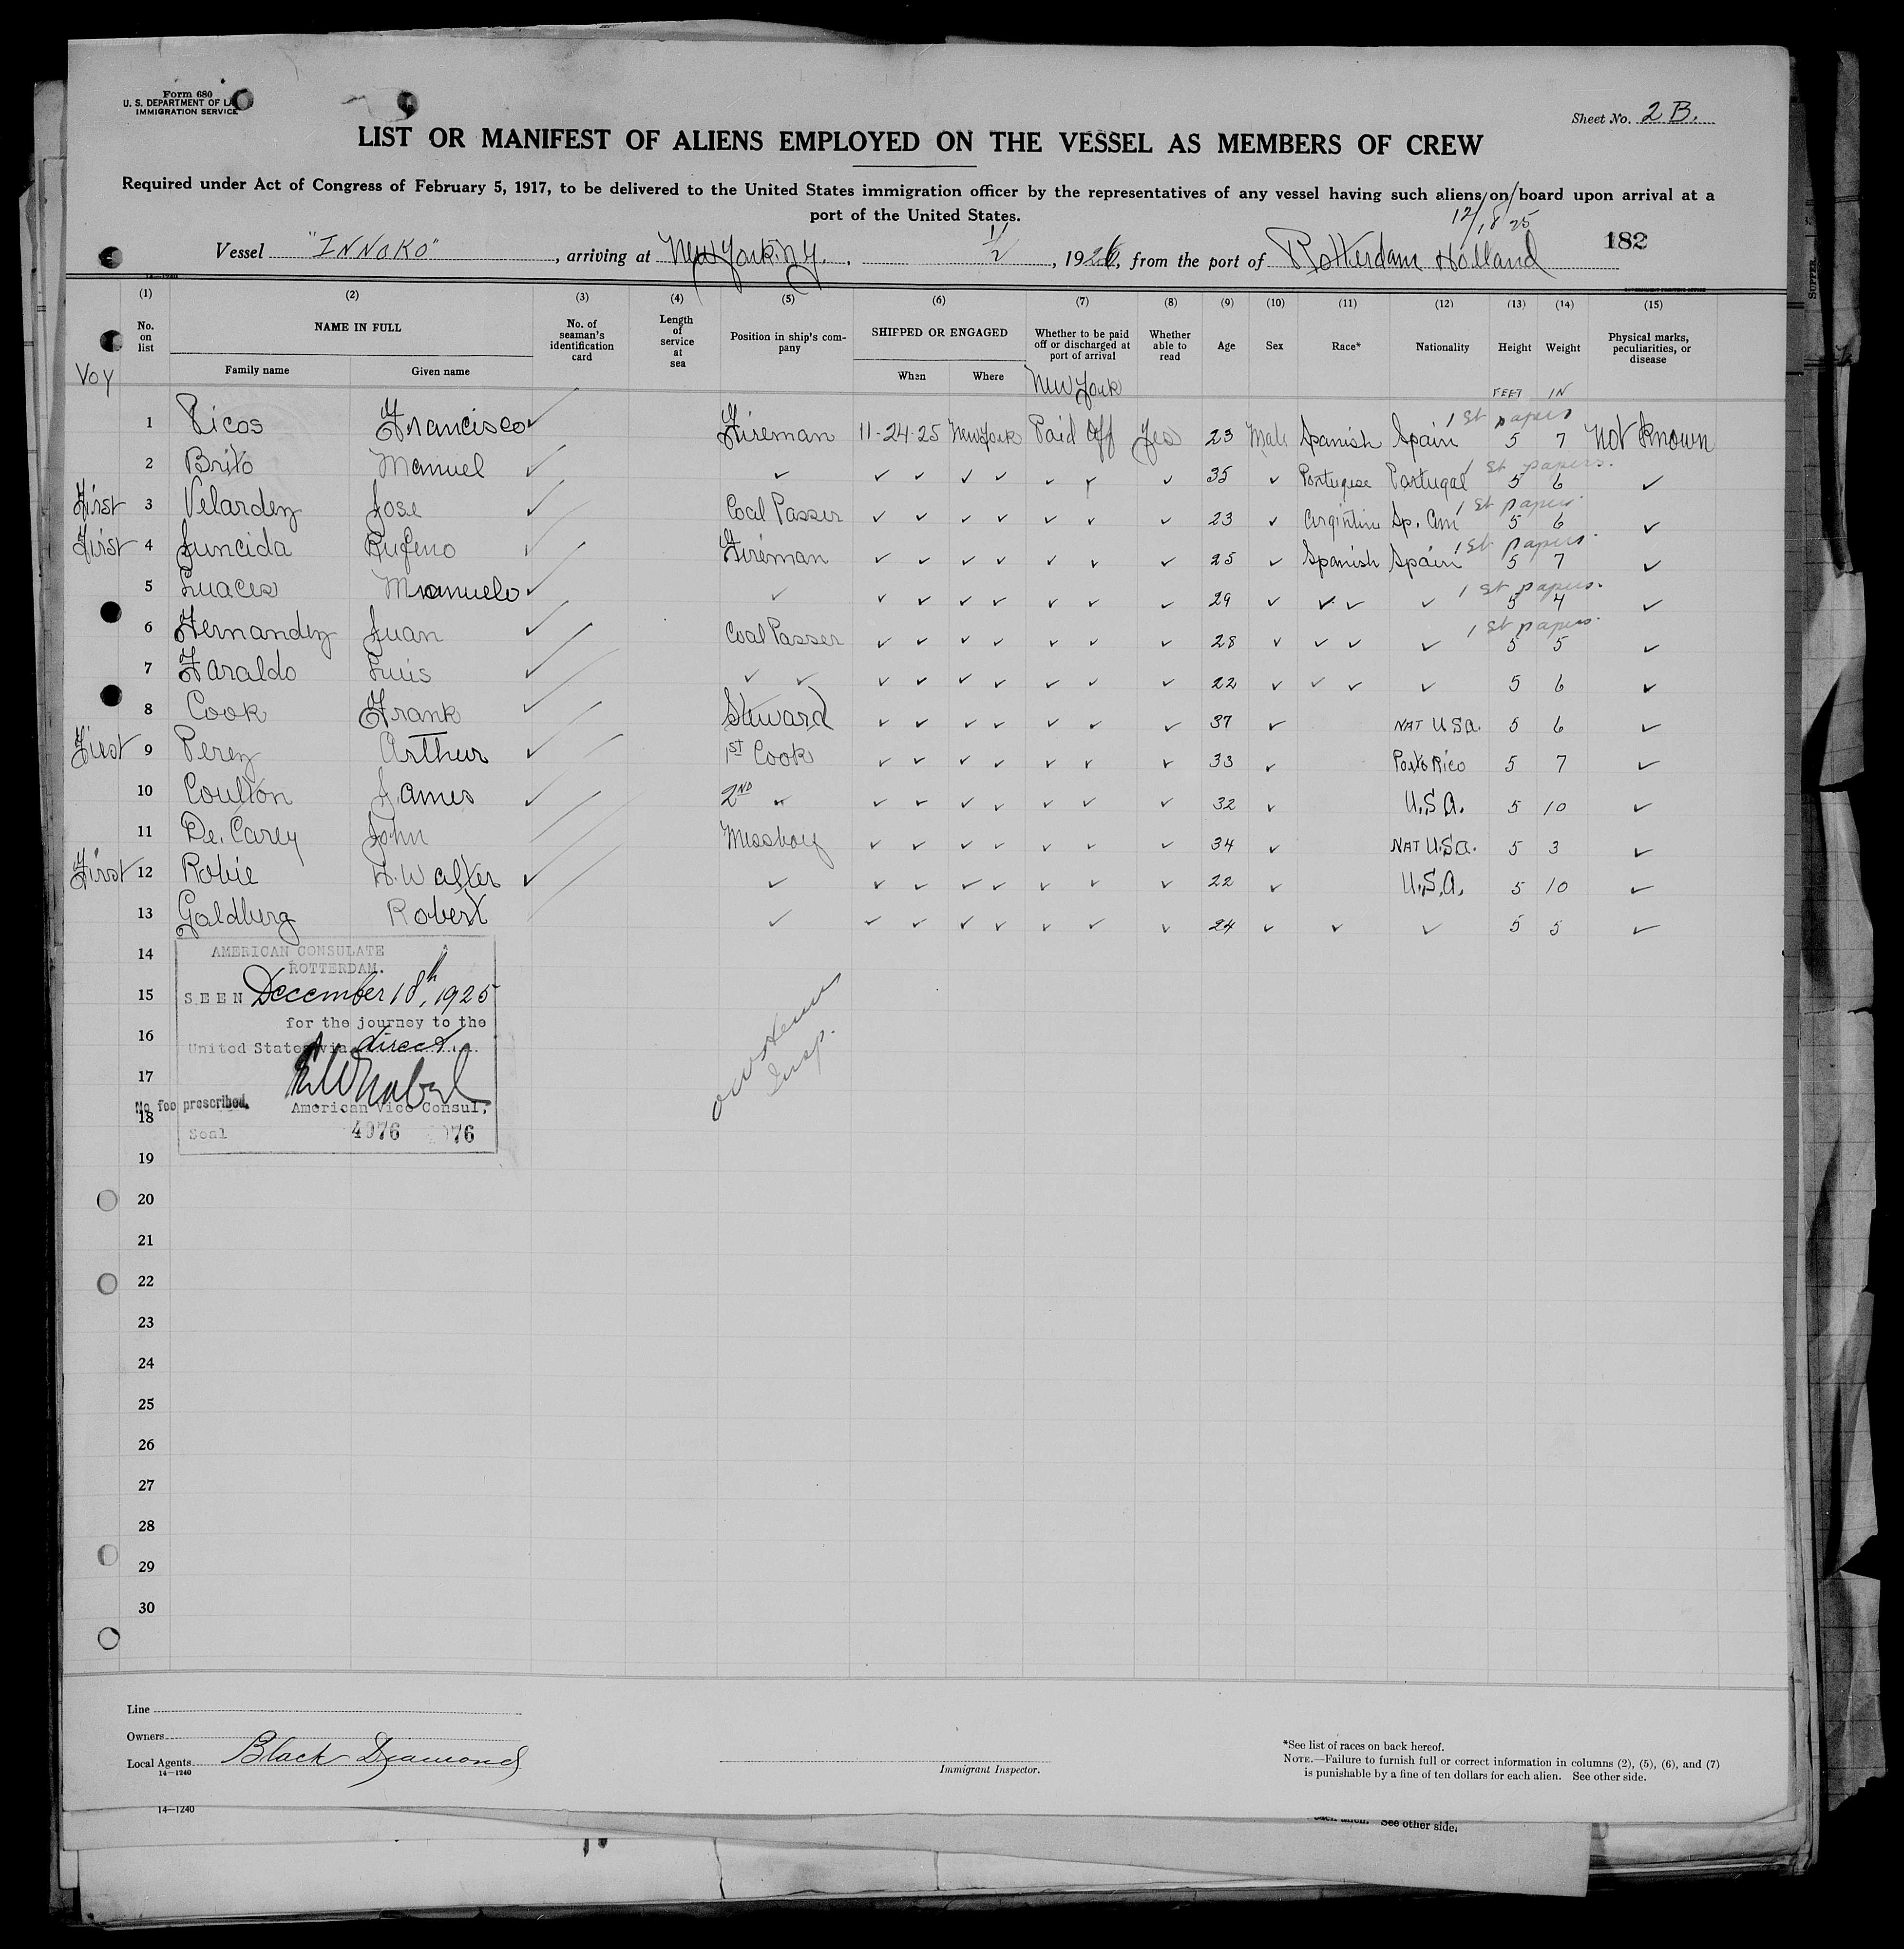 Form 680
U. S. DEPARTMENT OF LA
IMMIGRATION SERVICE
Sheet No. 2 B.
LIST OR MANIFEST OF ALIENS EMPLOYED ON THE VESSEL AS MEMBERS OF CREW
Required under Act of Congress of February 5, 1917, to be delivered to the United States immigration officer by the representatives of any vessel having such aliens on board upon arrival at a
port of the United States.
12/18/25
Vessel "INNOKO", arriving at New York. N.Y. 1/2, 1926, from the port of Rotterdam Holland 182
(1) (2) (3) (4) (5) (6) (7) (8) (9) (10) (11) (12) (13) (14) (15)
No. on list NAME IN FULL Family name Given name No. of seaman's identification card Length of service at sea Position in ship's company SHIPPED OR ENGAGED When Where Whether to be paid off or discharged at port of arrival Whether able to read Age Sex Race* Nationality Height Weight Physical marks, peculiarities, or disease
Voy New York FEET IN
1 Picos Francisco ✓ Fireman 11-24-25 New York Paid Off Yes 23 Male Spanish Spain 1st papers 5 7 Not Known
2 Brito Manuel ✓ ✓ ✓ ✓ ✓ ✓ ✓ ✓ ✓ 35 ✓ Portugese Portugal 1st papers. 5 6 ✓
First 3 Velardez Jose ✓ Coal Passer ✓ ✓ ✓ ✓ ✓ ✓ ✓ 23 ✓ Argintine Sp. Am 1st papers 5 6 ✓
First 4 Juncida Rufeno ✓ Fireman ✓ ✓ ✓ ✓ ✓ ✓ ✓ 25 ✓ Spanish Spain 1st papers. 5 7 ✓
5 Luaces Manuelo ✓ ✓ ✓ ✓ ✓ ✓ ✓ ✓ ✓ 29 ✓ ✓ ✓ ✓ 1st papers. 5 4 ✓
6 Hernandez Juan ✓ Coal Passer ✓ ✓ ✓ ✓ ✓ ✓ ✓ 28 ✓ ✓ ✓ ✓ 1st papers. 5 5 ✓
7 Faraldo Luis ✓ ✓ ✓ ✓ ✓ ✓ ✓ ✓ ✓ ✓ 22 ✓ ✓ ✓ ✓ 5 6 ✓
8 Cook Frank ✓ Steward ✓ ✓ ✓ ✓ ✓ ✓ ✓ 37 ✓ NAT U.S.A. 5 6 ✓
First 9 Perez Arthur ✓ 1ST Cook ✓ ✓ ✓ ✓ ✓ ✓ ✓ 33 ✓ Porto Rico 5 7 ✓
10 Coulton James ✓ 2ND ✓ ✓ ✓ ✓ ✓ ✓ ✓ ✓ 32 ✓ U.S.A. 5 10 ✓
11 De. Carey John Messboy ✓ ✓ ✓ ✓ ✓ ✓ ✓ 34 ✓ NAT U.S.A. 5 3 ✓
First 12 Robie Walter ✓ ✓ ✓ ✓ ✓ ✓ ✓ ✓ ✓ 22 ✓ U.S.A. 5 10 ✓
13 Goldberg Robert ✓ ✓ ✓ ✓ ✓ ✓ ✓ ✓ 24 ✓ ✓ ✓ 5 5 ✓
14
15
16
17
18
19
20
21
22
23
24
25
26
27
28
29
30
AMERICAN CONSULATE
ROTTERDAM.
SEEN December 18th, 1925
for the journey to the
United States via direct
No fee prescribed. American Vice Consul,
Seal 4976 76
Insp.
Line
Owners
Local Agents Black Diamond
14—1240
Immigrant Inspector.
*See list of races on back hereof.
NOTE.—Failure to furnish full or correct information in columns (2), (5), (6), and (7)
is punishable by a fine of ten dollars for each alien. See other side.
14—1240
See other side.
SUPPER